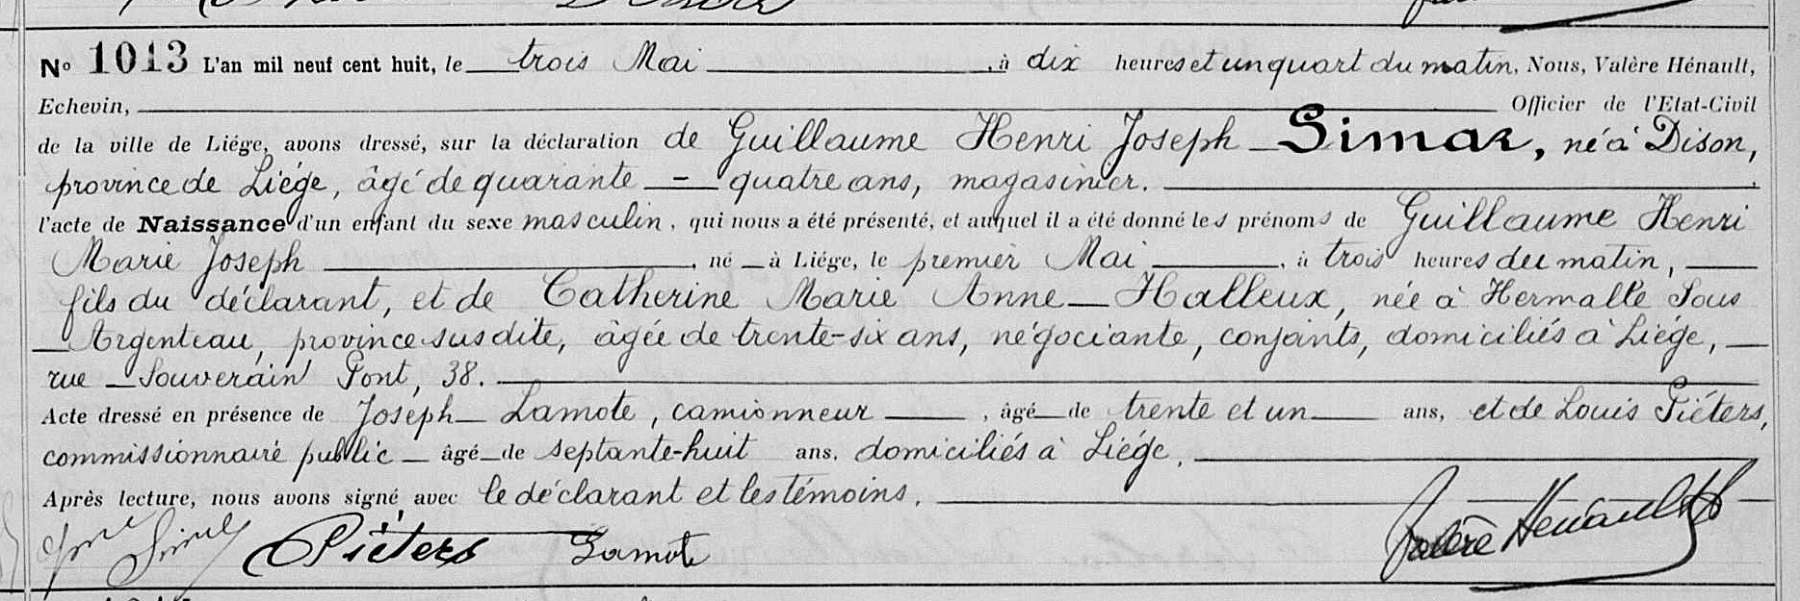 No 1013 L'an mil neuf cent huit, le trois Mai, à dix heures et un quart du matin, Nous, Valère Hénault,
Echevin, Officier de l'Etat-Civil
de la ville de Liége, avons dressé, sur la déclaration de Guillaume Henri Joseph Simar, né à Dison,
province de Liége, âgé de quarante - quatre ans, magasinier.
l'acte de Naissance d'un enfant du sexe masculin, qui nous a été présenté, et auquel il a été donné les prénoms de Guillaume Henri
Marie Joseph, né à Liége, le premier Mai, à trois heures du matin,
fils du déclarant, et de Catherine Marie Anne Halleux, née à Hermalle Sous
Argenteau, province susdite, âgée de trente-six ans, négociante, conjoints, domiciliés à Liége,
rue Souverain Pont, 38.
Acte dressé en présence de Joseph Lamote, camionneur, âgé de trente et un ans, et de Louis Piéters,
commissionnaire public âgé de septante-huit ans, domiciliés à Liége.
Après lecture, nous avons signé avec le déclarant et les témoins.
Piéters Lamote Valère Hénault